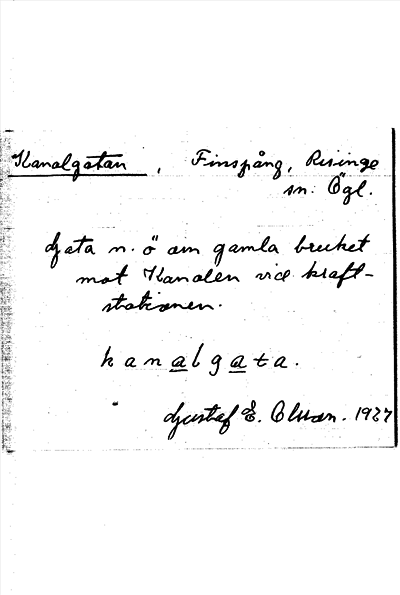 Kanalgatan, Finspång, Risinge
sn. Ögl.
Gata n. ö om gamla bruket
mot Kanalen vid kraft-
stationen.
kanalgata.
Gustaf E. Olsson. 1927